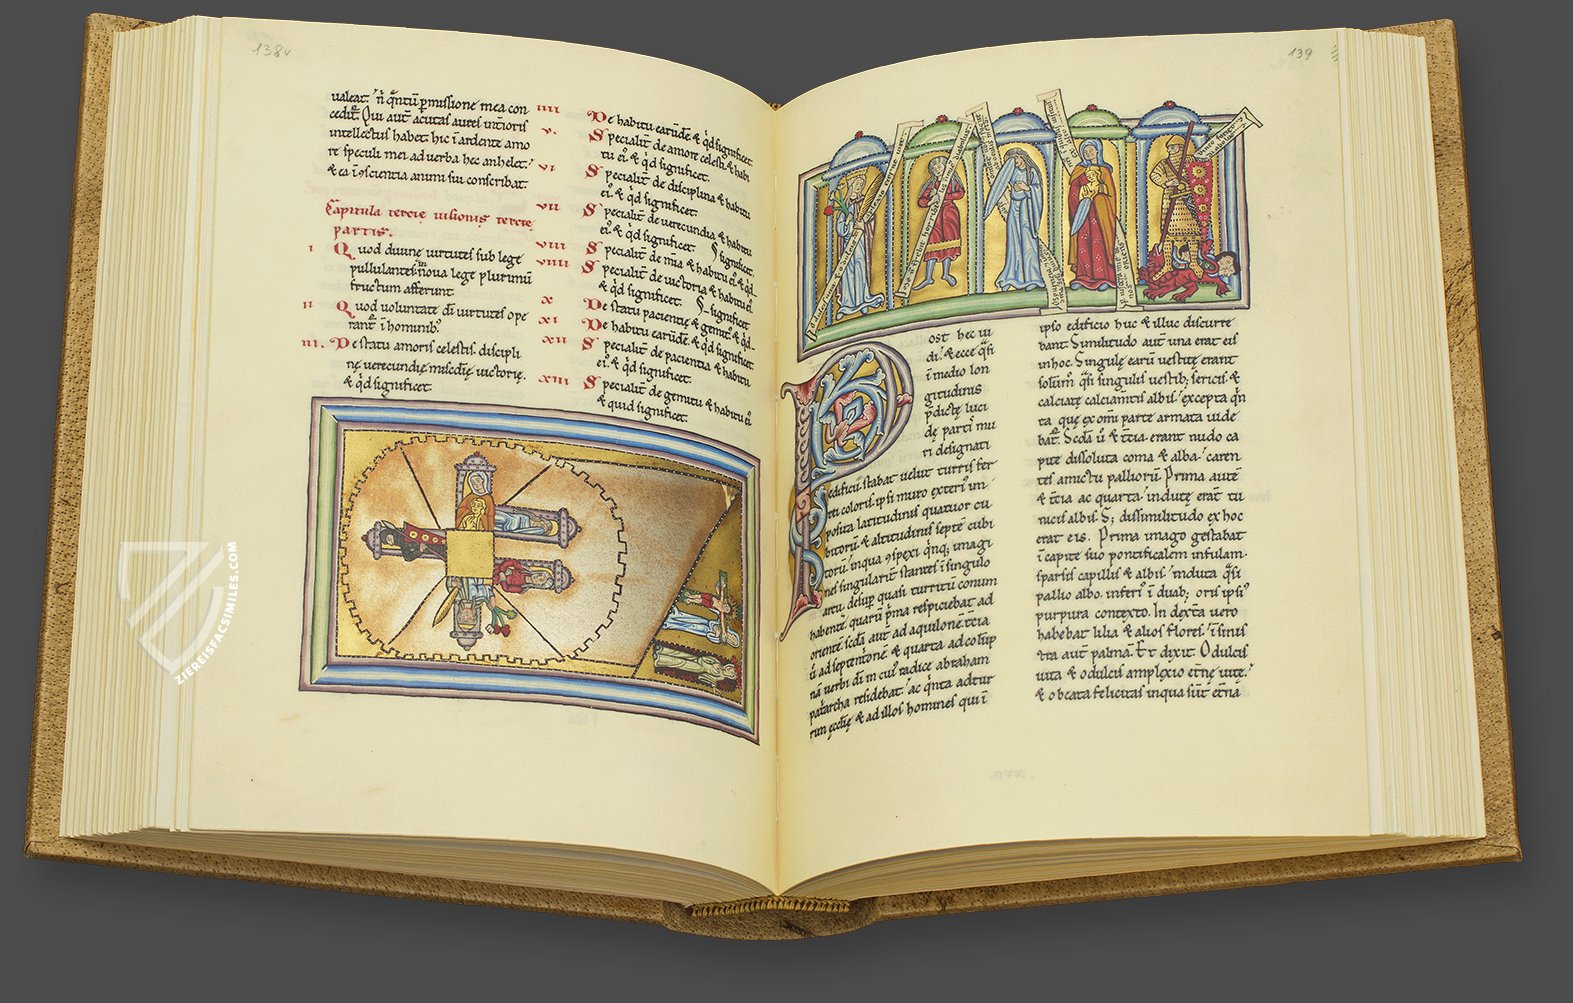 138v
ualeat. n̄ q̄ntū p̄missione mea con
cedit᷒. Qui aut̄ acutas aures int̄ioris
intellectus habet. hic ī ardente amo
re speculi mei ad uerba hec anhelet.
& ea ī ꝯscientia animi sui conscribat.
Capitula tercie uisionis tercie
partis.
i Quod diuine uirtutes sub lege
pullulantes ī noua lege plurimū
fructum afferunt
ii Quod uoluntate dī uirtutes ope
rant᷒ ī hominib᷒
iii. De statu amoris celestis. discipli
nę uerecundię mīscdię uictorię.
& q̄d significet.
iiii De habitu earūdē. & q̄d significet.
v. Specialit᷒ de amore celesti & habi
tu ei᷒ & q̄d significet.
vi Specialit᷒ de disciplina & habitu
ei᷒. & q̄d significet.
vii Specialit᷒ de uerecundia & habitu
ei᷒. & q̄d significet.
viii Specialit᷒ de m̄ia & habitu ei᷒ & q̄d
significet.
viiii Specialit᷒ de uictoria & habitu ei᷒
& q̄d significet.
x De statu pacientię & gemit᷒ & q̄d
significet
xi De habitu earūdē. & q̄d significet.
xii Specialit᷒ de pacientia & habitu
ei᷒. & q̄d significet.
xiii Specialit᷒ de gemitu & habitu ei᷒
& quid significet.
139
Post hec ui
di. & ecce q̄si
ī medio lon
gitudinis
p̄dictę luci
dę partī mu
ri designati
edificii. stabat uelut turris fer
rei coloris. ipsi muro exteri᷒ im
posita latitudinis quatuor cu
bitorū & altitudinis septē cubi
torū. inqua ꝯspexi q̄nq; imagi
nes singularit᷒ stantes ī singulo
arcu. desup̱ quasi turritū conum
habente. quarū p̄ma respiciebat ad
orientē. sc̄da aut̄ ad aquilonē. t̄cia
ū ad septentrionē & quarta ad colūp
nā uerbi dī. in cui᷒ radice abraham
patriarcha residebat. ac q̄nta ad tur
rim ęcclię & ad illos homines qui ī
ipso edificio huc & illuc discurre
bant. Similitudo aut̄ una erat eis
in hoc. Singulę earū uestitę erant
q̄si singulis uestib; sericis &
calciatę calciam̄tis albis. excepta q̄n
ta quę ex om̄i parte armata uide
bat᷒. Sc̄da ū & t̄cia. erant nudo ca
pite dissoluta coma & alba. caren
tes amictu palliorū. Prima autē
& t̄cia ac quarta. indutę erāt tu
nicis albis. S; dissimilitudo ex hoc
erat eis. Prima imago gestabat
ī capite suo pontificalem infulam.
sparsis capillis & albis. induta q̄si
pallio albo. inferi᷒ ī duab; oris ipsi᷒
purpura contexto. In dext̄a uero
habebat lilia & alios flores. ī sinis
tra aut̄ palmā. Et dixit. O dulcis
uita & o dulcis amplexio et̄nę uitę.
& o beata felicitas inqua sūt et̄na
ZIEREISFACSIMILES.COM